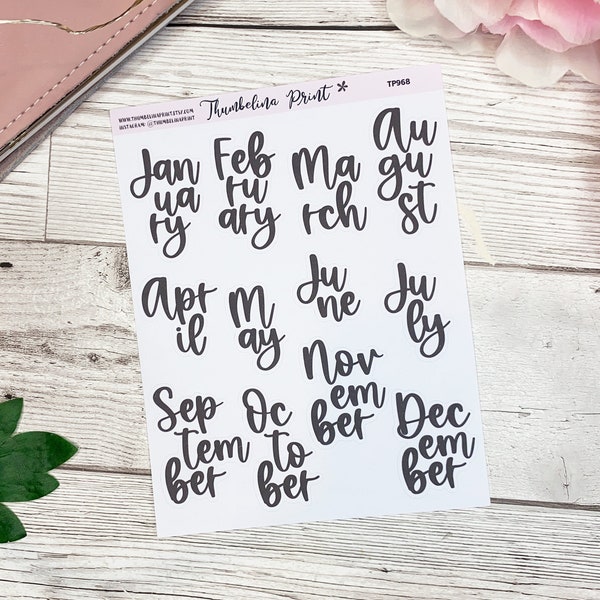 WWW.THUMBELINAPRINT.ETSY.COM
INSTAGRAM: @THUMBELINAPRINT
Thumbelina Print *
TP968
Jan
ua
ry
Feb
ru
ary
Ma
rch
Au
gu
st
Apr
il
M
ay
Ju
ne
Ju
ly
Sep
tem
ber
Oc
to
ber
Nov
em
ber
Dec
em
ber